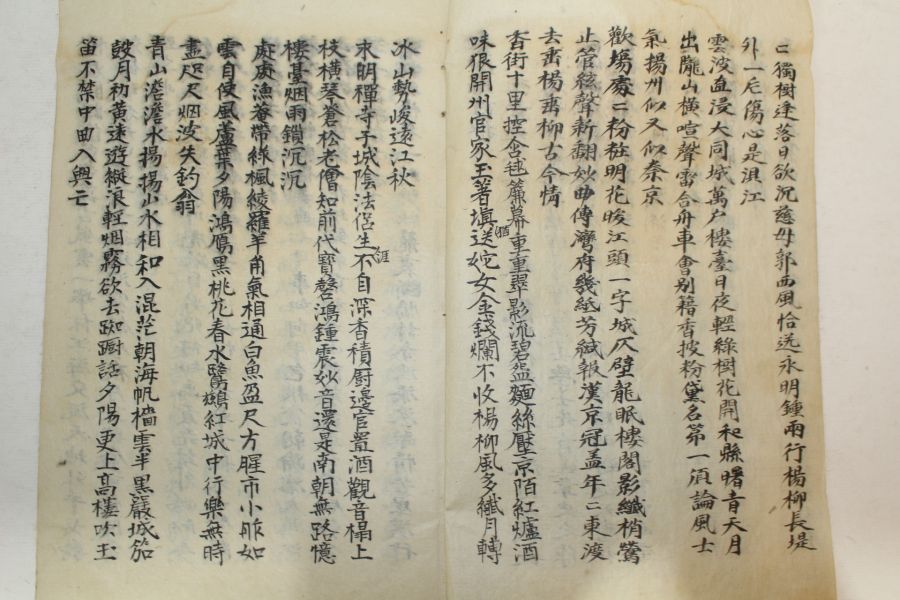 ニ獨樹迷落日欲沉慈母郭西風恰送永明鍾兩行楊柳長堤
外一片傷心是浿江
雲波直浸大同城萬戶樓臺日夜輕綠樹花開和縣曙青天月
出隴山橫喧聲雷合舟車會別籍香披粉黛名第一須論風土
氣揚州似又似秦京
歡場處ニ粉粧明花晙江頭一字城仄壁龍眠樓閣影纖梢鶯
止管絃聲新翻妙曲傳灣府幾紙芳緘報漢京冠盖年ニ東渡
去畨楊畨柳古今情
香街十里控含毬簾幕重重翠影流碧盌麵絲壓京陌紅爐酒
味狠開州官家玉著塡送姹女金錢爛不收楊柳風多纖月轉
冰山勢峻遠江秋
永明禪寺子城陰法侶生不自深香積厨邊官置酒觀音榻上
枝橫琴蒼松老僧知前代寶磬鴻鍾震妙音還是南朝無路憶
樓臺烟雨鎖沉沉
處處漁菴帶綠楓綾羅羊角氣相通白魚盈尺方腥市小舴如
雲自使風蘆葉夕陽鴻鴈黑桃花春水鷺鷀紅城中行樂無時
盡咫尺烟波失釣翁
青山澹澹水揚揚山水相和入混茫朝海帆檣雲半黑巖城笳
皷月初黃迷遊縱浪輕烟霧欲去踟躕話夕陽更上高樓吹玉
笛不禁中曲入興亡